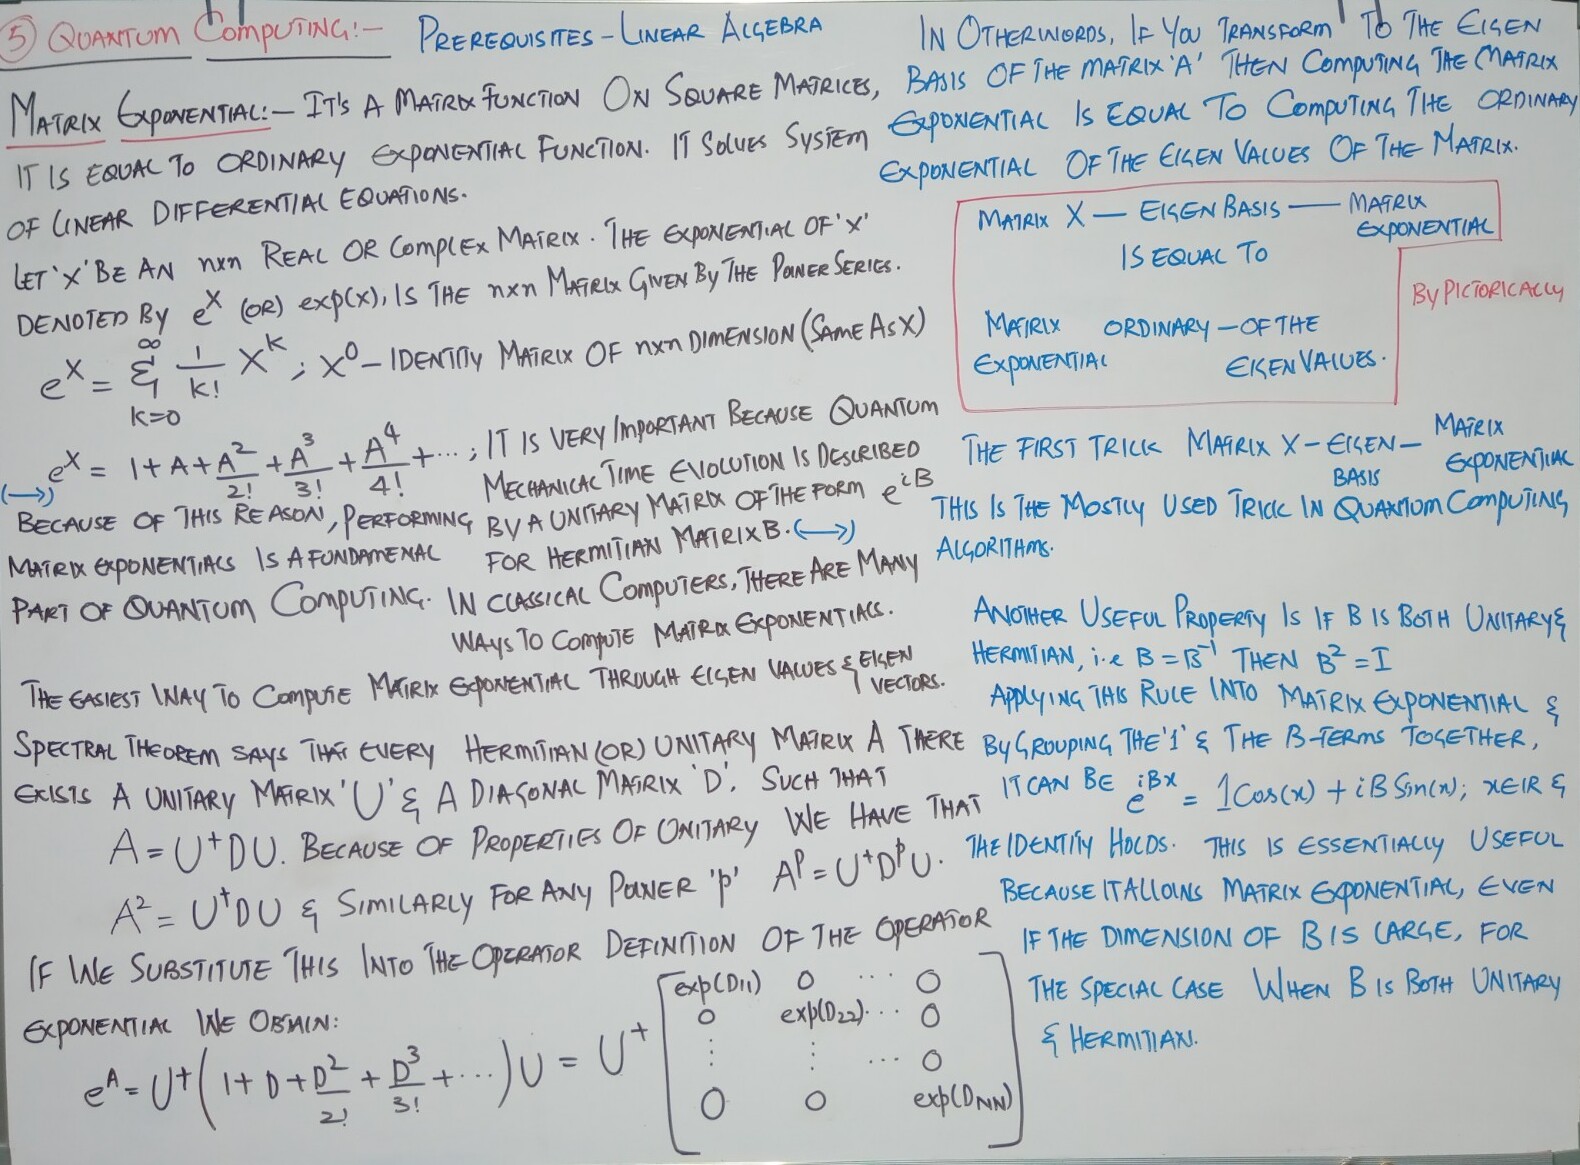 ⑤ QUANTUM COMPUTING:- PREREQUISITES - LINEAR ALGEBRA
MATRIX EXPONENTIAL:- IT'S A MATRIX FUNCTION ON SQUARE MATRICES,
IT IS EQUAL TO ORDINARY EXPONENTIAL FUNCTION. IT SOLVES SYSTEM
OF LINEAR DIFFERENTIAL EQUATIONS.
LET 'X' BE AN nxn REAL OR COMPLEX MATRIX. THE EXPONENTIAL OF 'X'
DENOTED BY e^X (OR) exp(x), IS THE nxn MATRIX GIVEN BY THE POWER SERIES.
e^X = ∑_{K=0}^{∞} 1/K! X^K ; X^0 - IDENTITY MATRIX OF nxn DIMENSION (SAME AS X)
e^X = 1 + A + A^2/2! + A^3/3! + A^4/4! + ... ; IT IS VERY IMPORTANT BECAUSE QUANTUM
MECHANICAL TIME EVOLUTION IS DESCRIBED
BY A UNITARY MATRIX OF THE FORM e^{iB}
FOR HERMITIAN MATRIX B. (→)
(→)
BECAUSE OF THIS REASON, PERFORMING
MATRIX EXPONENTIALS IS A FUNDAMENAL
PART OF QUANTUM COMPUTING. IN CLASSICAL COMPUTERS, THERE ARE MANY
WAYS TO COMPUTE MATRIX EXPONENTIALS.
THE EASIEST WAY TO COMPUTE MATRIX EXPONENTIAL THROUGH EIGEN VALUES & EIGEN
VECTORS.
SPECTRAL THEOREM SAYS THAT EVERY HERMITIAN (OR) UNITARY MATRIX A THERE
EXISTS A UNITARY MATRIX 'U' & A DIAGONAL MATRIX 'D'. SUCH THAT
A = U†DU. BECAUSE OF PROPERTIES OF UNITARY WE HAVE THAT
A^2 = U†DU & SIMILARLY FOR ANY POWER 'p' A^p = U†D^pU.
IF WE SUBSTITUTE THIS INTO THE OPERATOR DEFINITION OF THE OPERATOR
EXPONENTIAL WE OBTAIN:
e^A = U†(1 + D + D^2/2! + D^3/3! + ...)U = U†
exp(D11) 0 ... 0
0 exp(D22)... 0
⋮ ⋮ ... 0
0 0 exp(DNN)
IN OTHERWORDS, IF YOU TRANSFORM TO THE EIGEN
BASIS OF THE MATRIX 'A' THEN COMPUTING THE MATRIX
EXPONENTIAL IS EQUAL TO COMPUTING THE ORDINARY
EXPONENTIAL OF THE EIGEN VALUES OF THE MATRIX.
MATRIX X — EIGEN BASIS — MATRIX
EXPONENTIAL
IS EQUAL TO
MATRIX ORDINARY - OF THE
EXPONENTIAL EIGEN VALUES.
BY PICTORICALLY
THE FIRST TRICK MATRIX X - EIGEN - MATRIX
BASIS EXPONENTIAL
THIS IS THE MOSTLY USED TRICK IN QUANTUM COMPUTING
ALGORITHMS.
ANOTHER USEFUL PROPERTY IS IF B IS BOTH UNITARY &
HERMITIAN, i.e B = B^-1 THEN B^2 = I
APPLYING THIS RULE INTO MATRIX EXPONENTIAL &
BY GROUPING THE '1' & THE B-TERMS TOGETHER,
IT CAN BE e^{iBx} = 1Cos(x) + iB Sin(x); x∈IR &
THE IDENTITY HOLDS. THIS IS ESSENTIALLY USEFUL
BECAUSE IT ALLOWS MATRIX EXPONENTIAL, EVEN
IF THE DIMENSION OF B IS LARGE, FOR
THE SPECIAL CASE WHEN B IS BOTH UNITARY
& HERMITIAN.